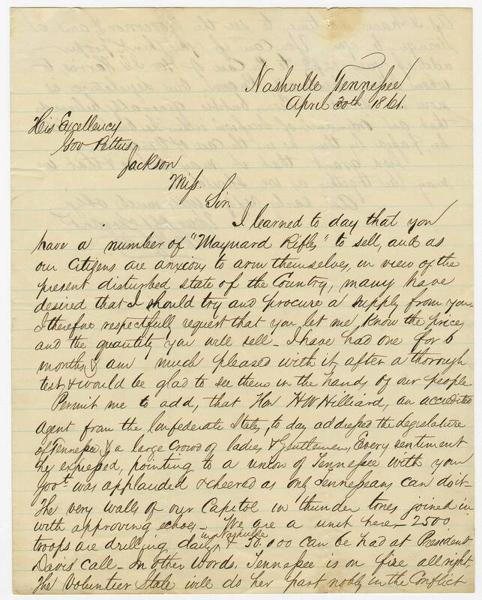 Nashville Tennessee
April 30th 1861.
His Excellency
Gov Pettus
Jackson
Miss.
Sir.
I learned to day that you
have a number of "Maynard Rifles" to sell, and as
our Citizens are anxious to arm themselves, in view of the
present disturbed state of the Country, many have
desired that I should try and procure a supply from you
I therefore respectfully request that you let me, Know the prices
and the quantity you will sell - I have had one for 6
months, & am much pleased with it, after a thorough
test, & would be glad to see them in the hands of our people
Permit me to add, that Hon H W Hilliard, an accredited
agent from the Confederate States, to day addressed the legislature
of Tennessee & a large Crowd of ladies & Gentlemen, Every sentiment
he expressed, pointing to a union of Tennessee with your
Govt. was applauded & cheered as only Tennesseans can do it-
The very walls of our Capitol in thunder tones joined in
with approving echoes - We are a unit here - 2500
troops are drilling daily in Nashville & 50.000 can be had at President
Davis' call - In other words, Tennessee is on fire all right
The Volunteer State will do her part nobly in the Conflict